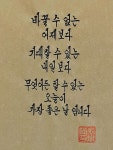 바꿀 수 없는
어제보다
기대할 수 없는
내일보다
무엇이든 할 수 있는
오늘이
가장 좋은 날 입니다